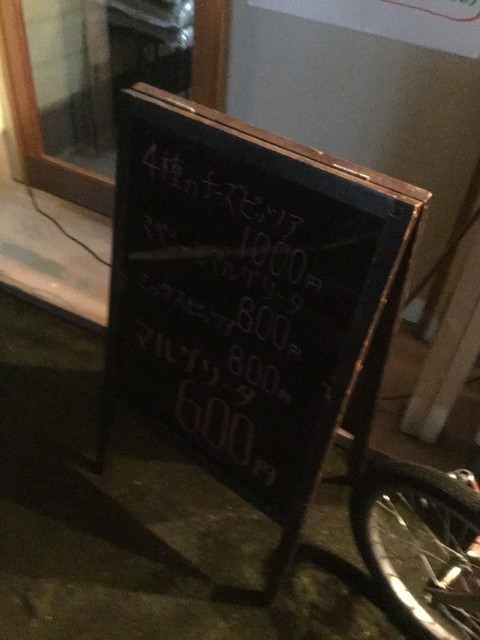 4種のチーズピッツア
1000円
マルゲリータ
800円
ミックスピッツア
800円
マルゲリータ
600円